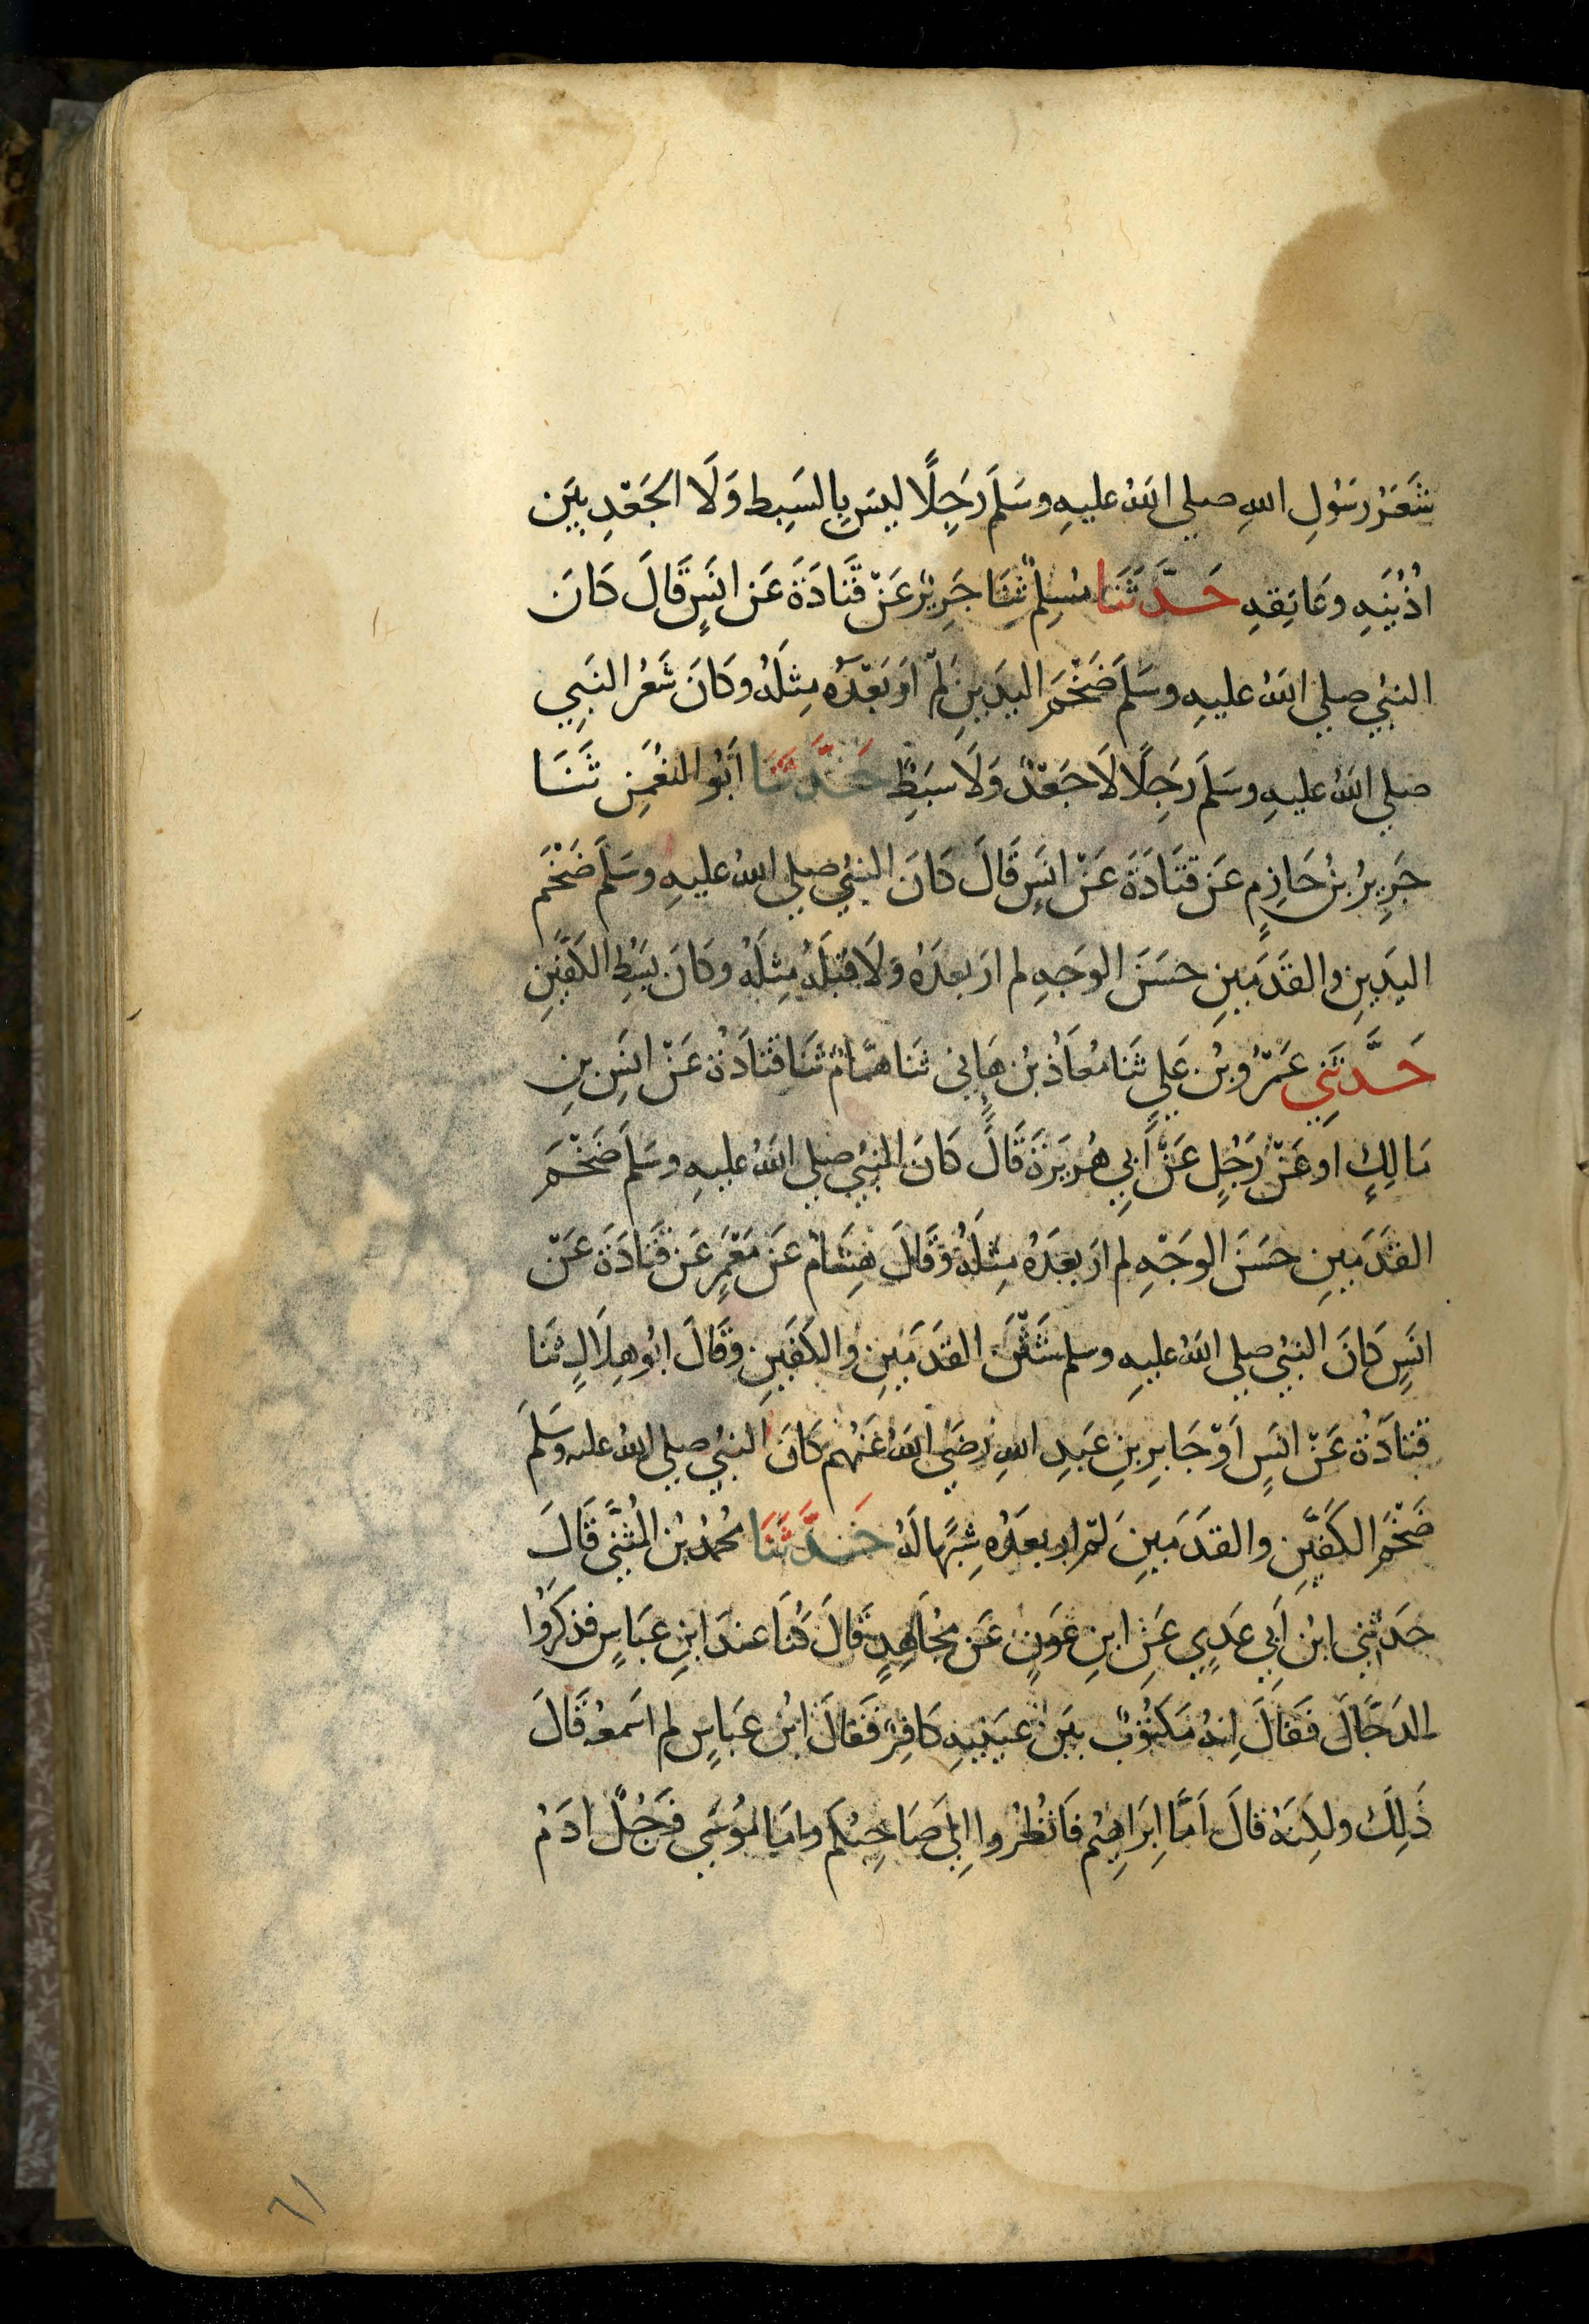 شَعَرُ رَسُولِ اللهِ صلى اللهُ عليهِ وسَلَمَ رَجِلًا ليسَ بِالسَبِطِ وَلَا الجَعْدِ بَيَن
اُذُنَيَهِ وعَاتِقهِ حَدَّثَنَا مُسِلمٌ ثَنَا جَرِيرٌ عَنْ قَتَادَةَ عَن انَسٍ قَالَ كَانَ
النبيُ صلى اللهُ عليهِ وسَلمَ ضَخْمَ اليدَينِ لَمْ اَرَ بَعْدَهُ مِثلَهُ وكَانَ شَعَرُ النَبِي
صلى اللهُ عليهِ وسَلَمَ رَجِلًا لَا جَعْدٌ وَلَا سَبَطٌ حَدَّثَنَا اَبُو النعُمَنِ ثَنَا
جَرِيرُ بنُ حَازِمٍ عَن قَتَادَةَ عَنْ انَسٍ قَالَ كَانَ النبيُ صلى اللهُ عليهِ وسَلَم ضَخْمَ
اليَدَينِ والقَدَمَينِ حسَنَ الوجَهِ لم ارَ بعدَهُ وَلَا قَبلَهُ مِثلَهُ وكَانَ بَسِطَ الكَفَّينِ
حَدَّثَنِي عَمْرُو بنُ عَلي ثَنا مُعَاذُ بنُ هَانِي ثَنا همَّامٌ ثَنا قتَادَةُ عَنْ انَسِ بنِ
مَالِكٍ او عَنْ رَجُلٍ عَنْ اَبِي هُرَيرَةَ قَالَ كَانَ النبيُ صلى اللهُ عليهِ وسَلَمَ ضَخْمَ
القدَمَينِ حسَنَ الوجْهِ لم ارَ بعَدَهُ مِثلَهُ وقَالَ هِشَامٌ عَن مَعْمَرٍ عَن قَتَادَةَ عَنْ
انَسٍ كَانَ النبيُ صلى اللهُ عليهِ وسلم شَثْنَ القَدَمَينِ والكَفَينِ وقَالَ ابُو هِلَالٍ ثَنا
قتادَةُ عَنْ انَسٍ اَوْ جَابِرِ بنِ عَبدِ اللهِ رَضَيَ اللهُ عَنْهُم كَانَ النبيُ صلى اللهُ عليه وسَلمَ
ضَخْمَ الكَفَّينِ والقدَمَينِ لَم ارَ بعَدَهُ شِبَهًا لَهُ حَدَّثَنَا محُمدُ بنُ المُثَنَّى قَالَ
حَدثَني ابنُ اَبِي عَدِيٍ عَنِ ابنِ عَونٍ عَن مجُاَهِدٍ قَالَ كُنَا عندَ ابنِ عبَاسٍ فذَكَرُوا
الدَجَّالَ فَقَالَ اِنهُ مَكتُوبٌ بَينَ عيَنَيهِ كَافِرٌ فَقَالَ ابنُ عبَاسٍ لم اسمعهُ قَالَ
ذَلِكَ ولكِنَهُ قَالَ اَمَّا اِبرَاهِيمُ فَانُظُرُوا اِلَى صَاحِبِكُم وامَا مُوسَى فرَجُلٌ ادَمُ
٦١